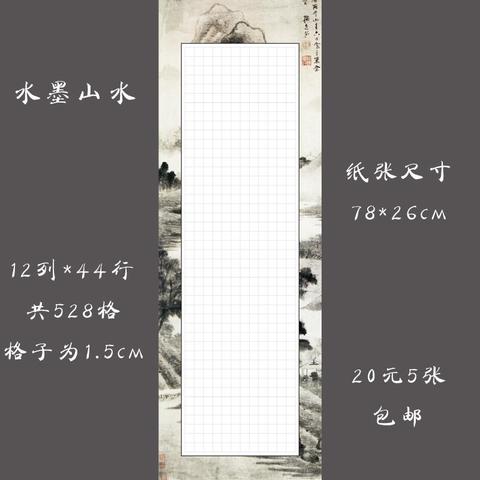 水墨山水
纸张尺寸
78*26cm
12列*44行
共528格
格子为1.5cm
20元5张
包邮